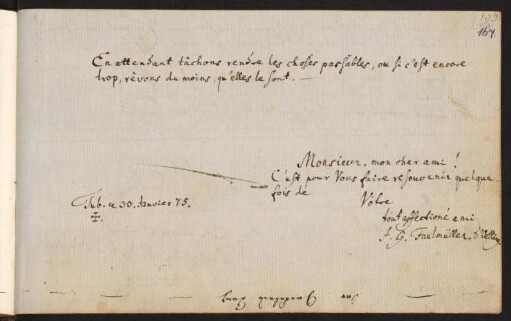 164
En attendant tâchons rendre les choses passables, ou si c'est encore
trop, rêvons du moins, qu'elles le sont. —
Monsieur, mon cher ami !
C'est pour Vous faire resouvenir quelque
fois de Vôtre
Tub. ce 30. Janvier 75.
tout affectioné ami
Faulmüller